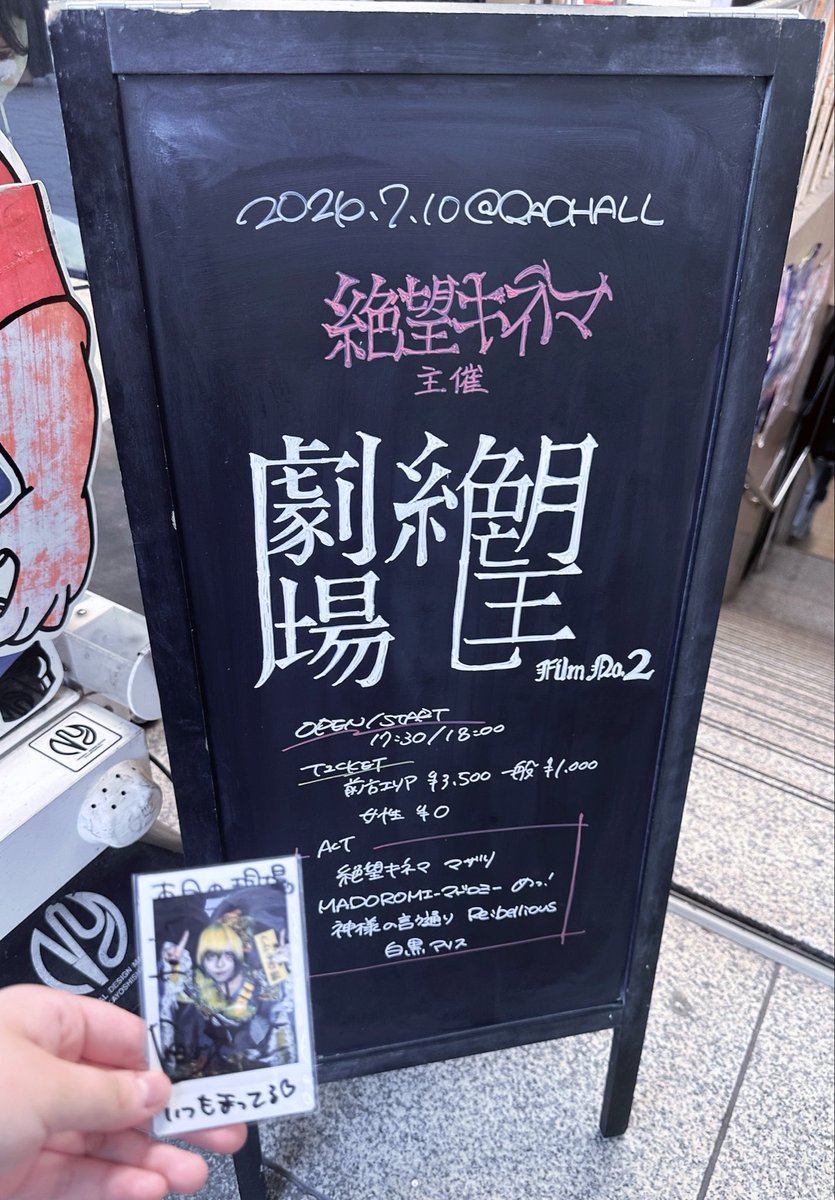 2026.7.10@RADHALL
絶望キネマ
主催
絶望
劇場
Film No.2
OPEN/START
17:30/18:00
TICKET
前方エリア ¥3,500 一般 ¥1,000
女性 ¥0
ACT
絶望キネマ マザリ
MADOROMI-マドロミー めっ!
神様の言う通り Re:bellious
白黒アリス
本日の現場
いつもまってる